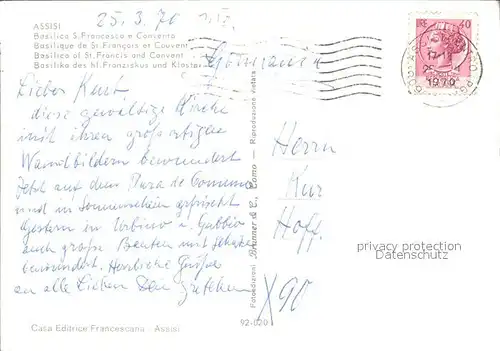 25.3.70
ASSISI
Basilica S. Francesco e Convento
Basilique de St. François et Couvent
Basilica of St. Francis and Convent
Basilika des hl. Franziskus und Kloster
LIRE 40
1970
Germania
Lieber Kurt
diese gewaltige Kirche
mit ihren großartigen
Wandbildern bewundert
Jetzt auf dem
und in Sonnenschein gefrischt
Gestern in Urbino u. Gubbio
auch große Bauten mit
bewundert. Herzliche Grüße
an alle Lieben Dein
Herrn
Kur
Hoff
privacy protection
Datenschutz
X90
Fotoedizioni Brunner & C., Como — Riproduzione vietata
Casa Editrice Francescana - Assisi
92-020